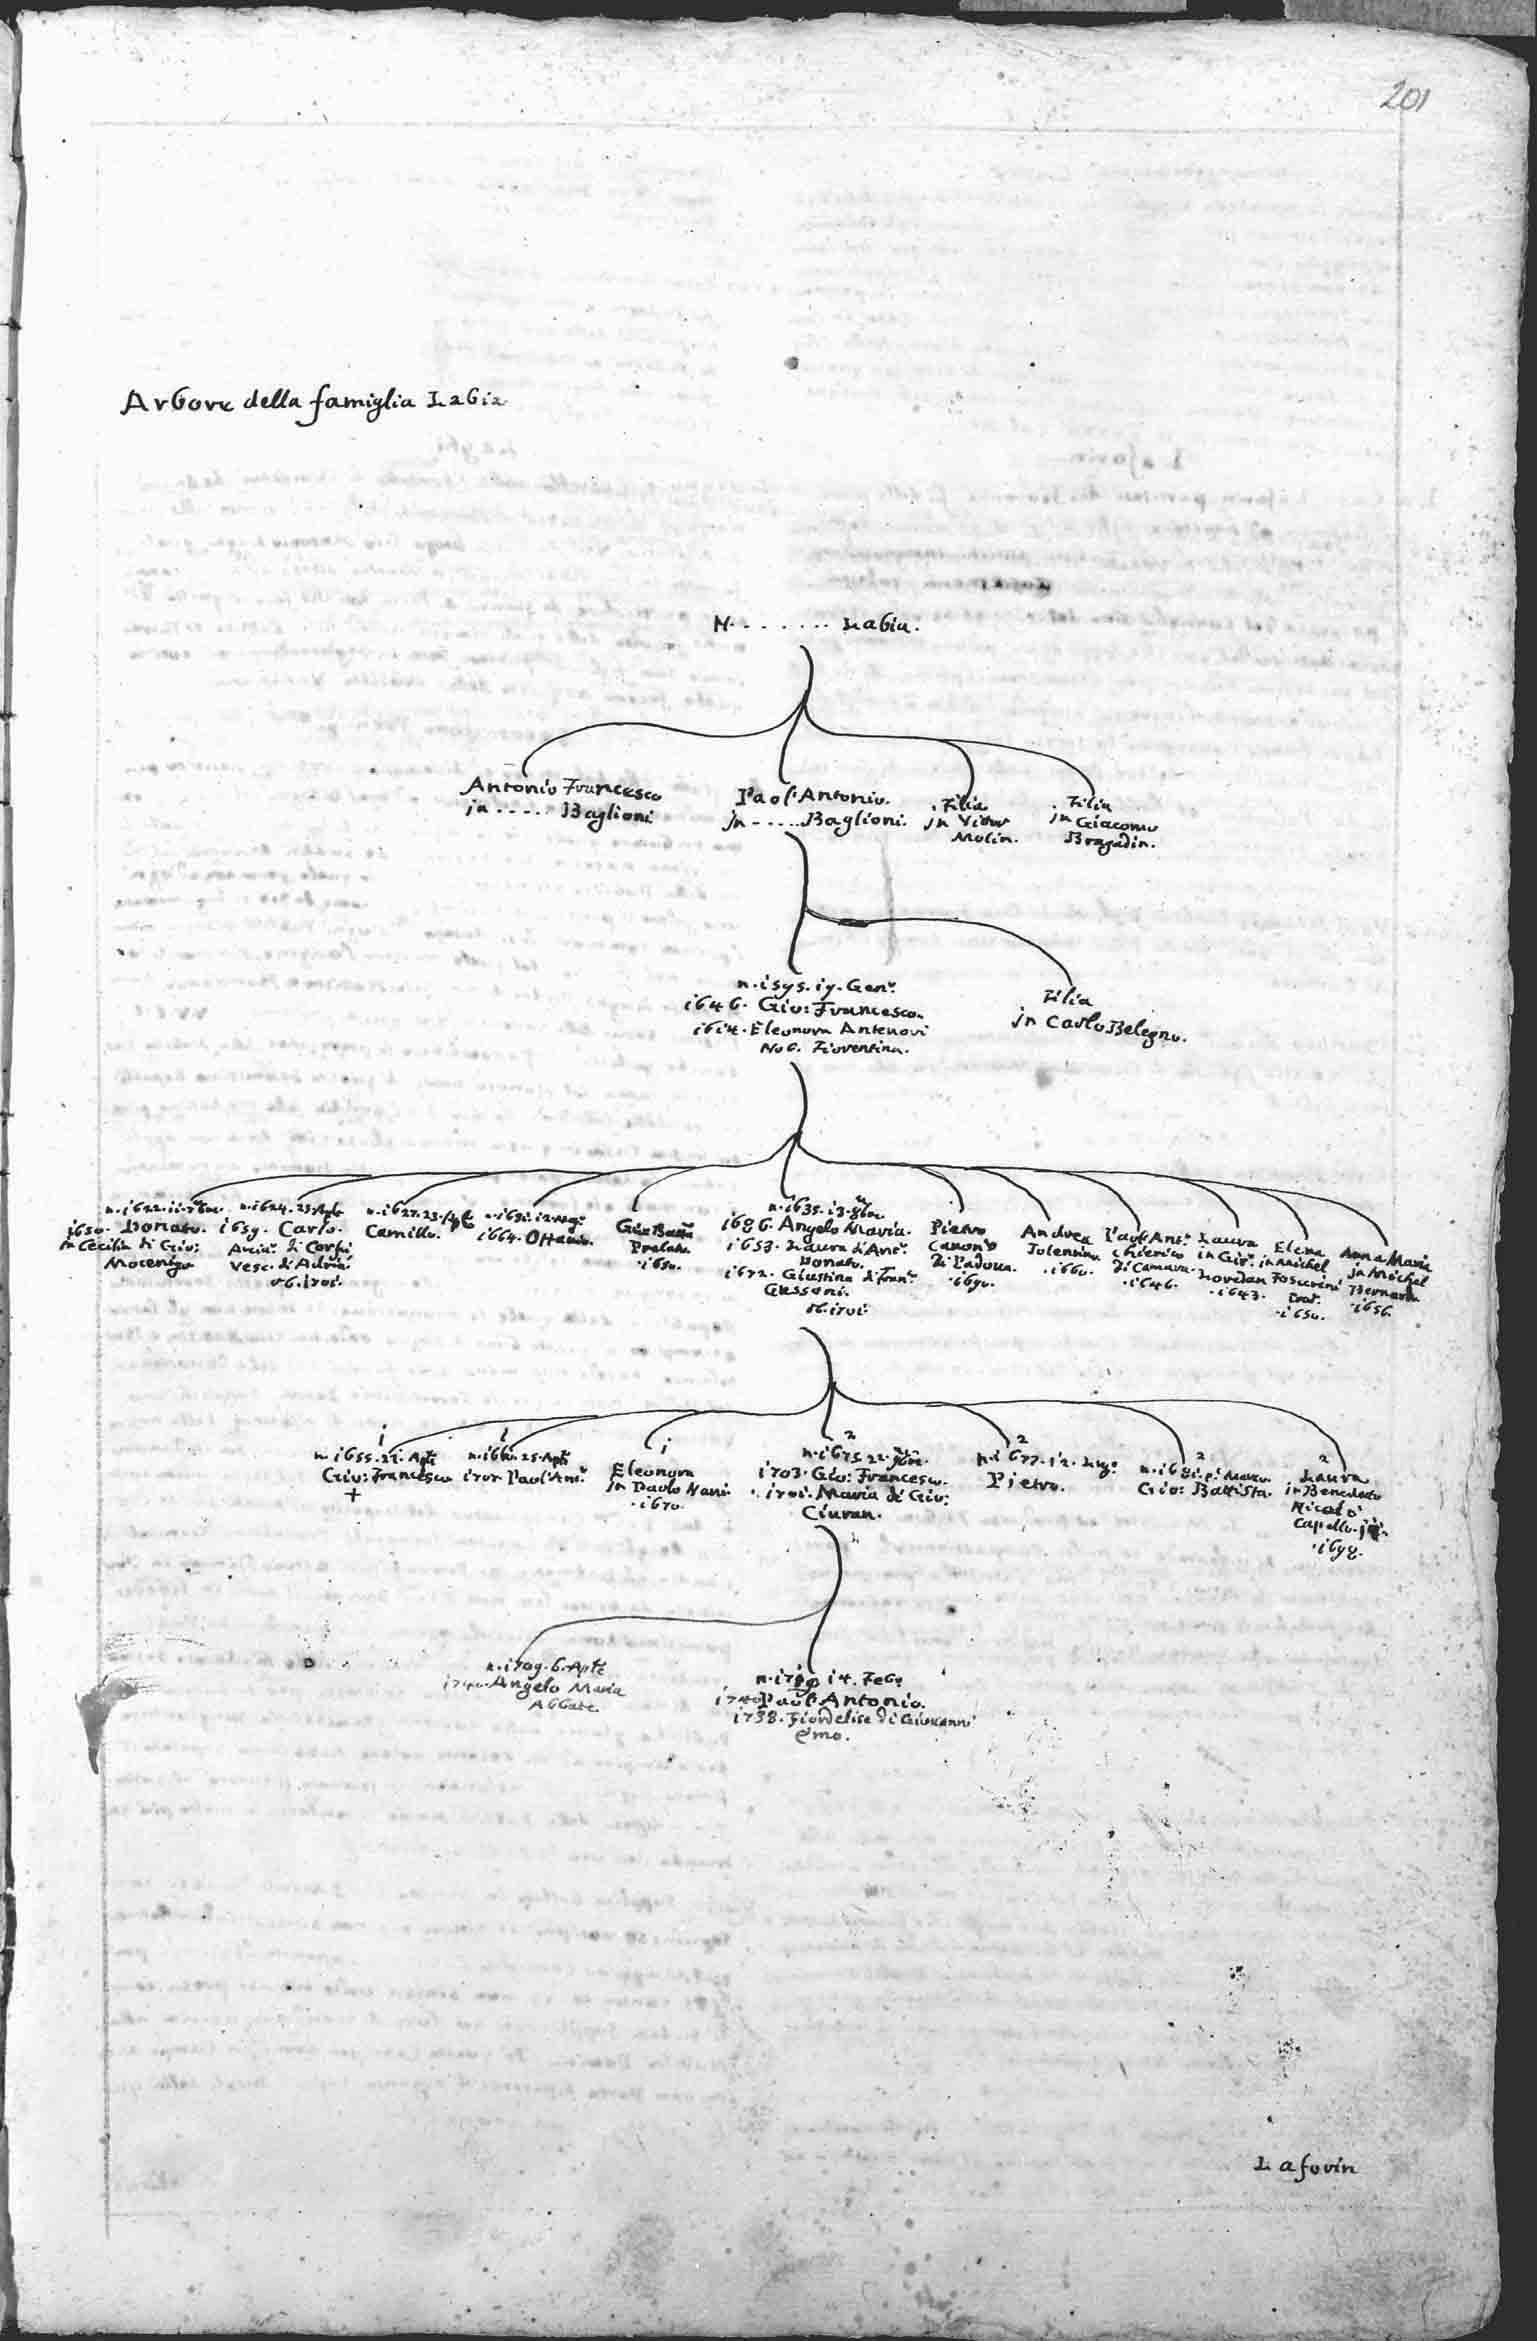 201
Arbore della famiglia Labia
N. . . . . . . Labia.
Antonio Francesco
in ..... Baglioni
Paol'Antonio.
in ..... Baglioni.
Filia
in Vidor
Molin.
Filia
in Giacomo
Bragadin.
n. i595. i9. Genr.
i646. Gio: Francesco.
i6i4. Eleonora Antenori
Nob. Fiorentina.
Filia
in Carlo Belegno.
n. i622. ii.
i650. Donato.
in Cecilia di Gio:
Mocenigo
n. i624. 23. Aple
i659. Carlo.
Arciv. di Corfù
Vesc. di Adria
ob. i70i.
n. i627. 23.
Camillo.
n. i63i. i2.
i664. Ottavio.
Gio Batta
Prelato.
.i650.
n. i635. i3. 8bre
i686. Angelo Maria.
i653. Laura d'Ant.
Donato.
i672. Giustina di Fran.
Gussoni.
ob. i70i
Pietro
Canonico
di Padoua.
.i690.
Andrea
Tolentino
.i660.
Paol'Ant.
Chierico
di Camara.
.i646.
Laura
in Gir.
Loredan
.i643.
Elena
in Michel
Foscarini
.i650.
Anna Maria
in Michel
Bernardo
.i656.
i
n. i655. 22. Aple
Gio: Francesco
+
i
25. Aple
Paol'Ant.
i
Eleonora
in Paolo Nani
.i670.
2
n. i675. 22. 9bre.
i703. Gio: Francesco.
i70i. Maria di Gio:
Ciuran.
2
n. i677. i2. Lug.
Pietro.
2
n. i68i. p. Marzo.
Gio: Battista.
2
Laura
in Benedetto
Nicolò
Capello
.i698.
n. i709. 6. Aple
i740. Angelo Maria
Abbate.
i4. Feb.
i740 Paol'Antonio.
i738. Fiordelise di Giovanni
Emo.
Lafovin